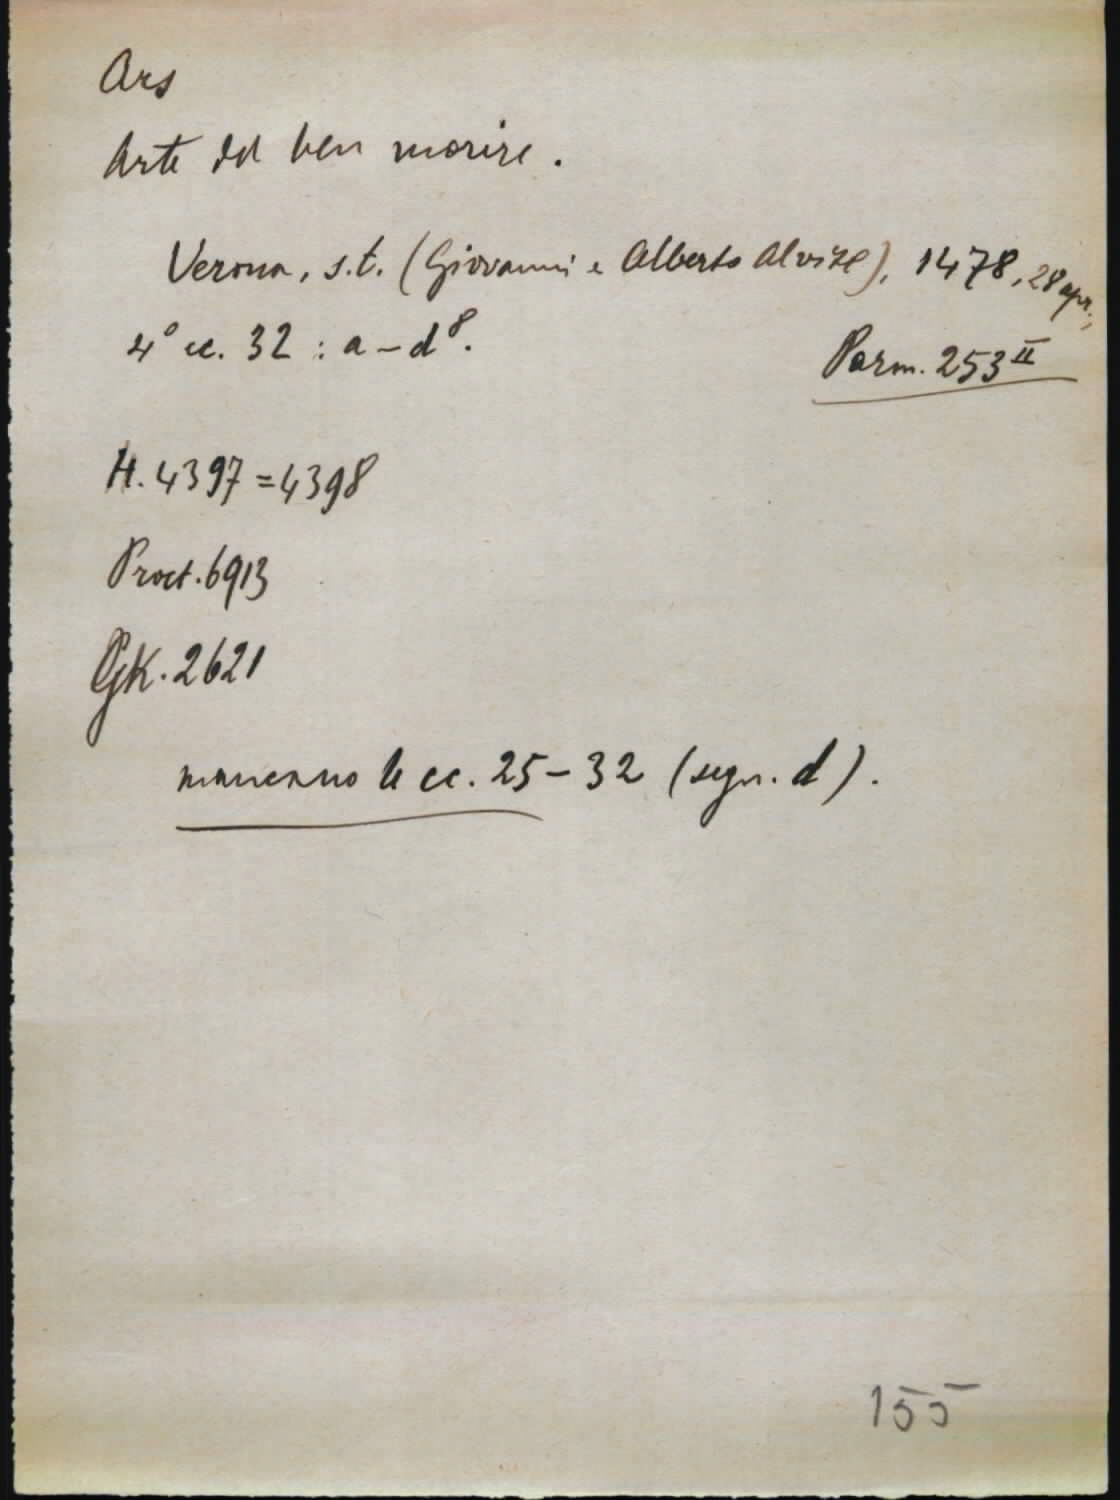 Ars
Arte del ben morire.
Verona, s.t. (Giovanni e Alberto Alvise), 1478, 28 apr.,
4° cc. 32 : a-d⁸.
Parm. 253 II
H. 4397 = 4398
Proct. 6913
GK. 2621
mancano le cc. 25-32 (segn. d).
155